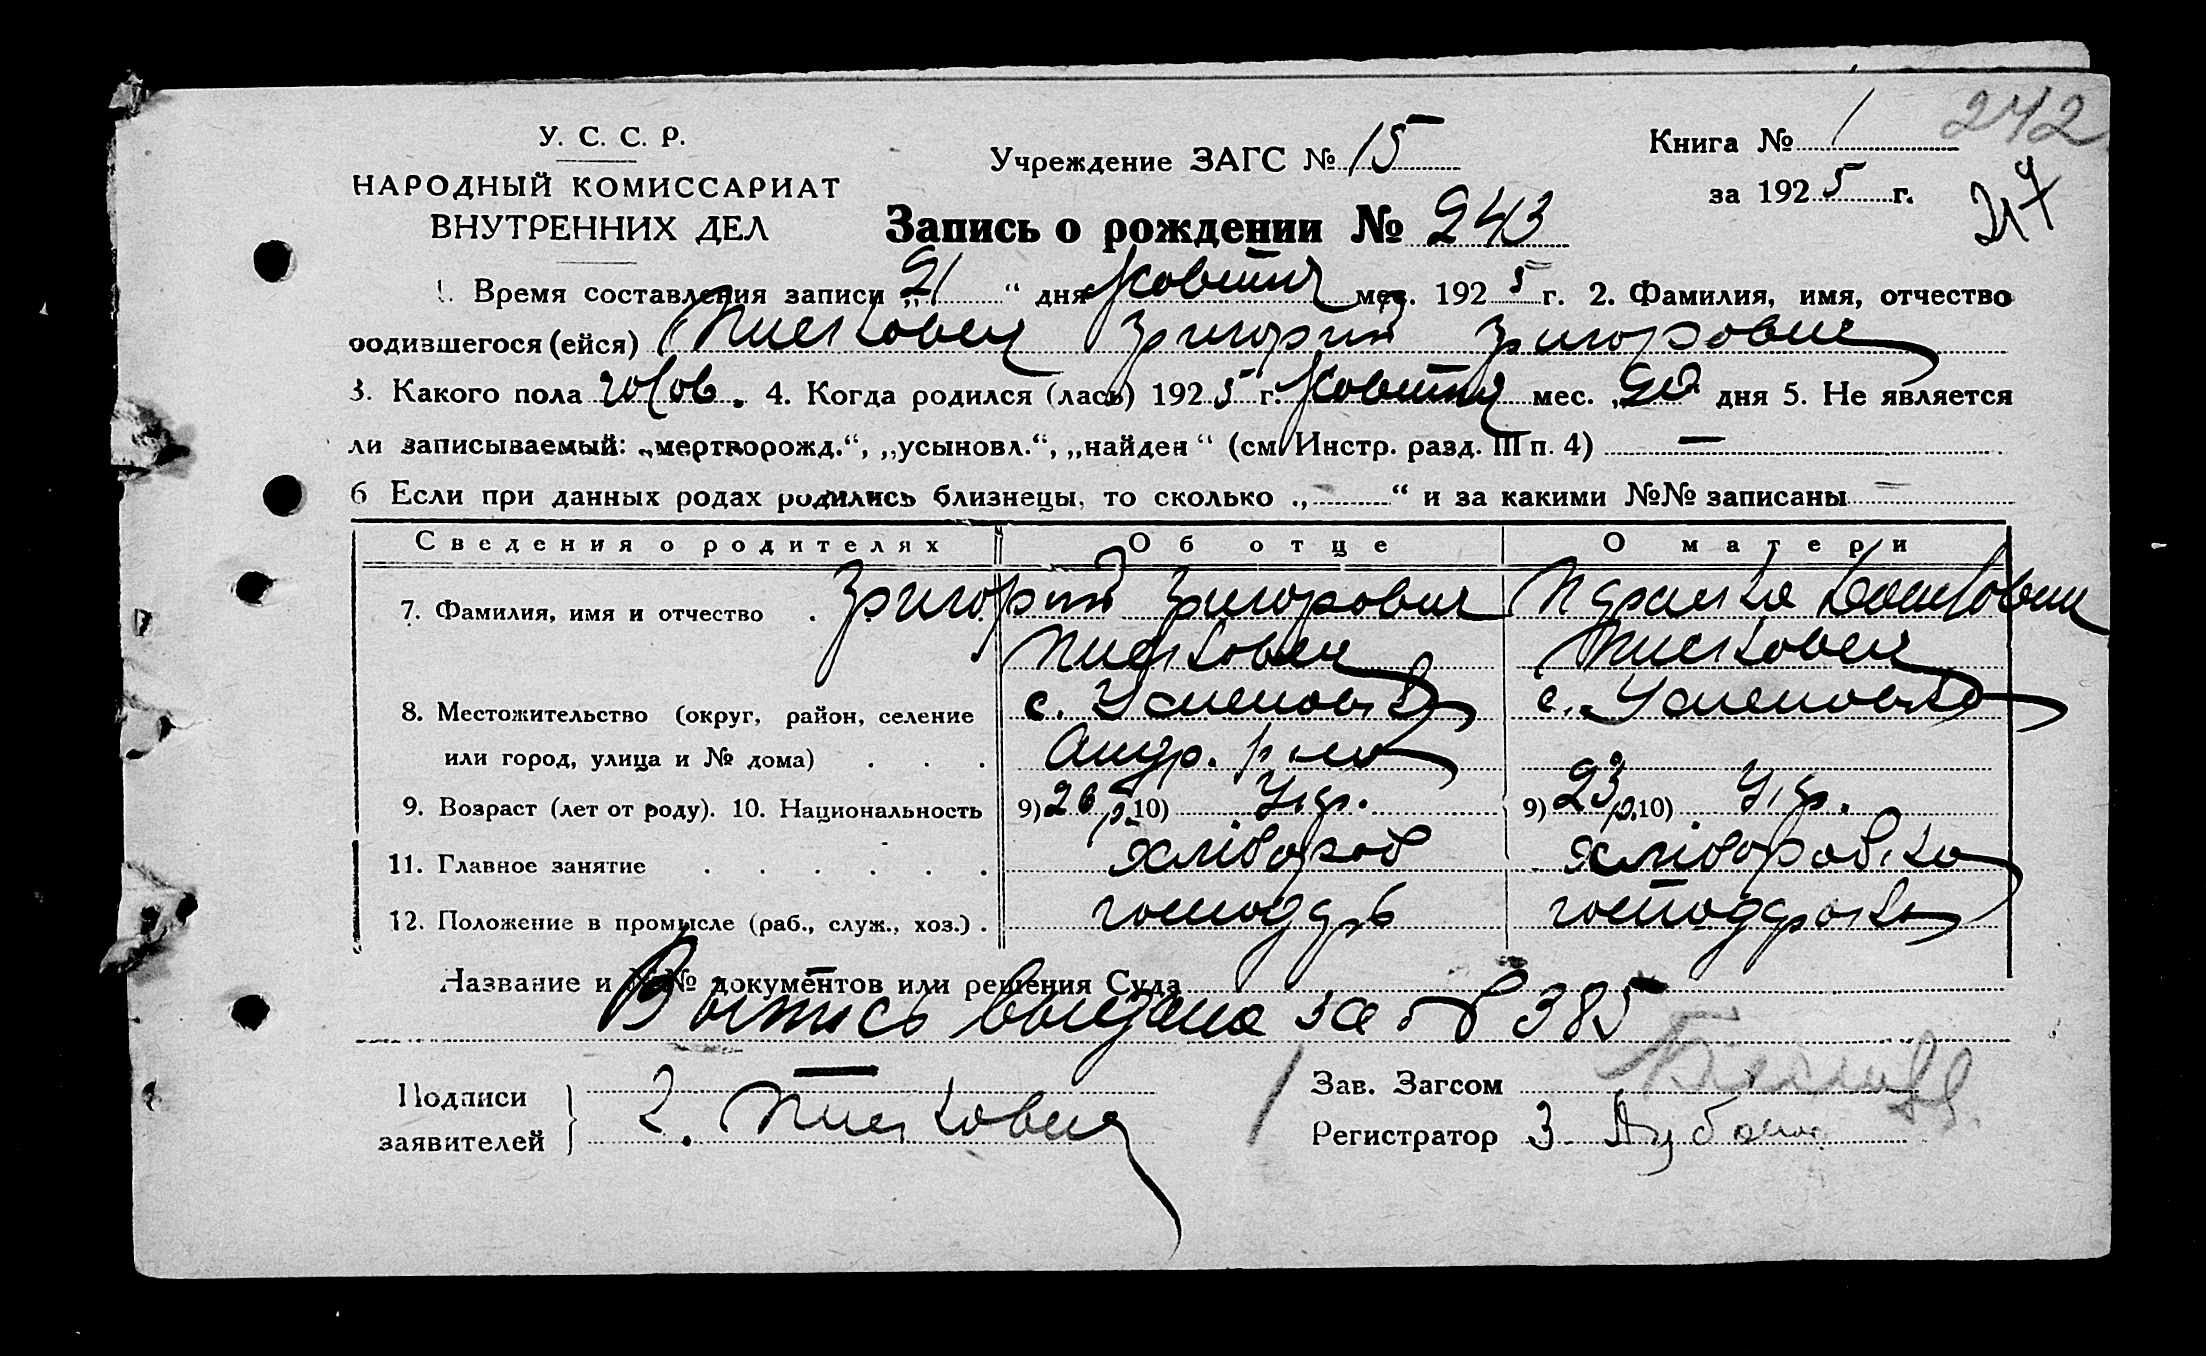 242
У. С. С. Р.
НАРОДНЫЙ КОМИССАРИАТ
ВНУТРЕННИХ ДЕЛ
Учреждение ЗАГС № 15
Книга № 1
за 1925 г.
Запись о рождении № 243
1. Время составления записи „21“ дня Жовтня мес. 1925 г. 2. Фамилия, имя, отчество
родившегося (ейся) Григорий Григорович
3. Какого пола чолов. 4. Когда родился (лась) 1925 г. Жовтня мес. „20“ дня 5. Не является
ли записываемый: „мертворожд.“, „усыновл.“, „найден“ (см. Инстр. разд. III п. 4) —
6 Если при данных родах родились близнецы, то сколько „-“ и за какими №№ записаны —
Сведения о родителях Об отце О матери
7. Фамилия, имя и отчество . Григорий Григорович
8. Местожительство (округ, район, селение с. Успеновка с. Успеновка
или город, улица и № дома) . . . Андр. р-ну
9. Возраст (лет от роду). 10. Национальность 9) 26 р. 10) Укр. 9) 23 р. 10) Укр.
11. Главное занятие . . . . . . хлібороб хліборобка
12. Положение в промысле (раб., служ., хоз.) . господарь господарка
Название и №№ документов или решения Суда
Выпись выдана за № 385
Подписи
заявителей
Зав. Загсом
Регистратор З.